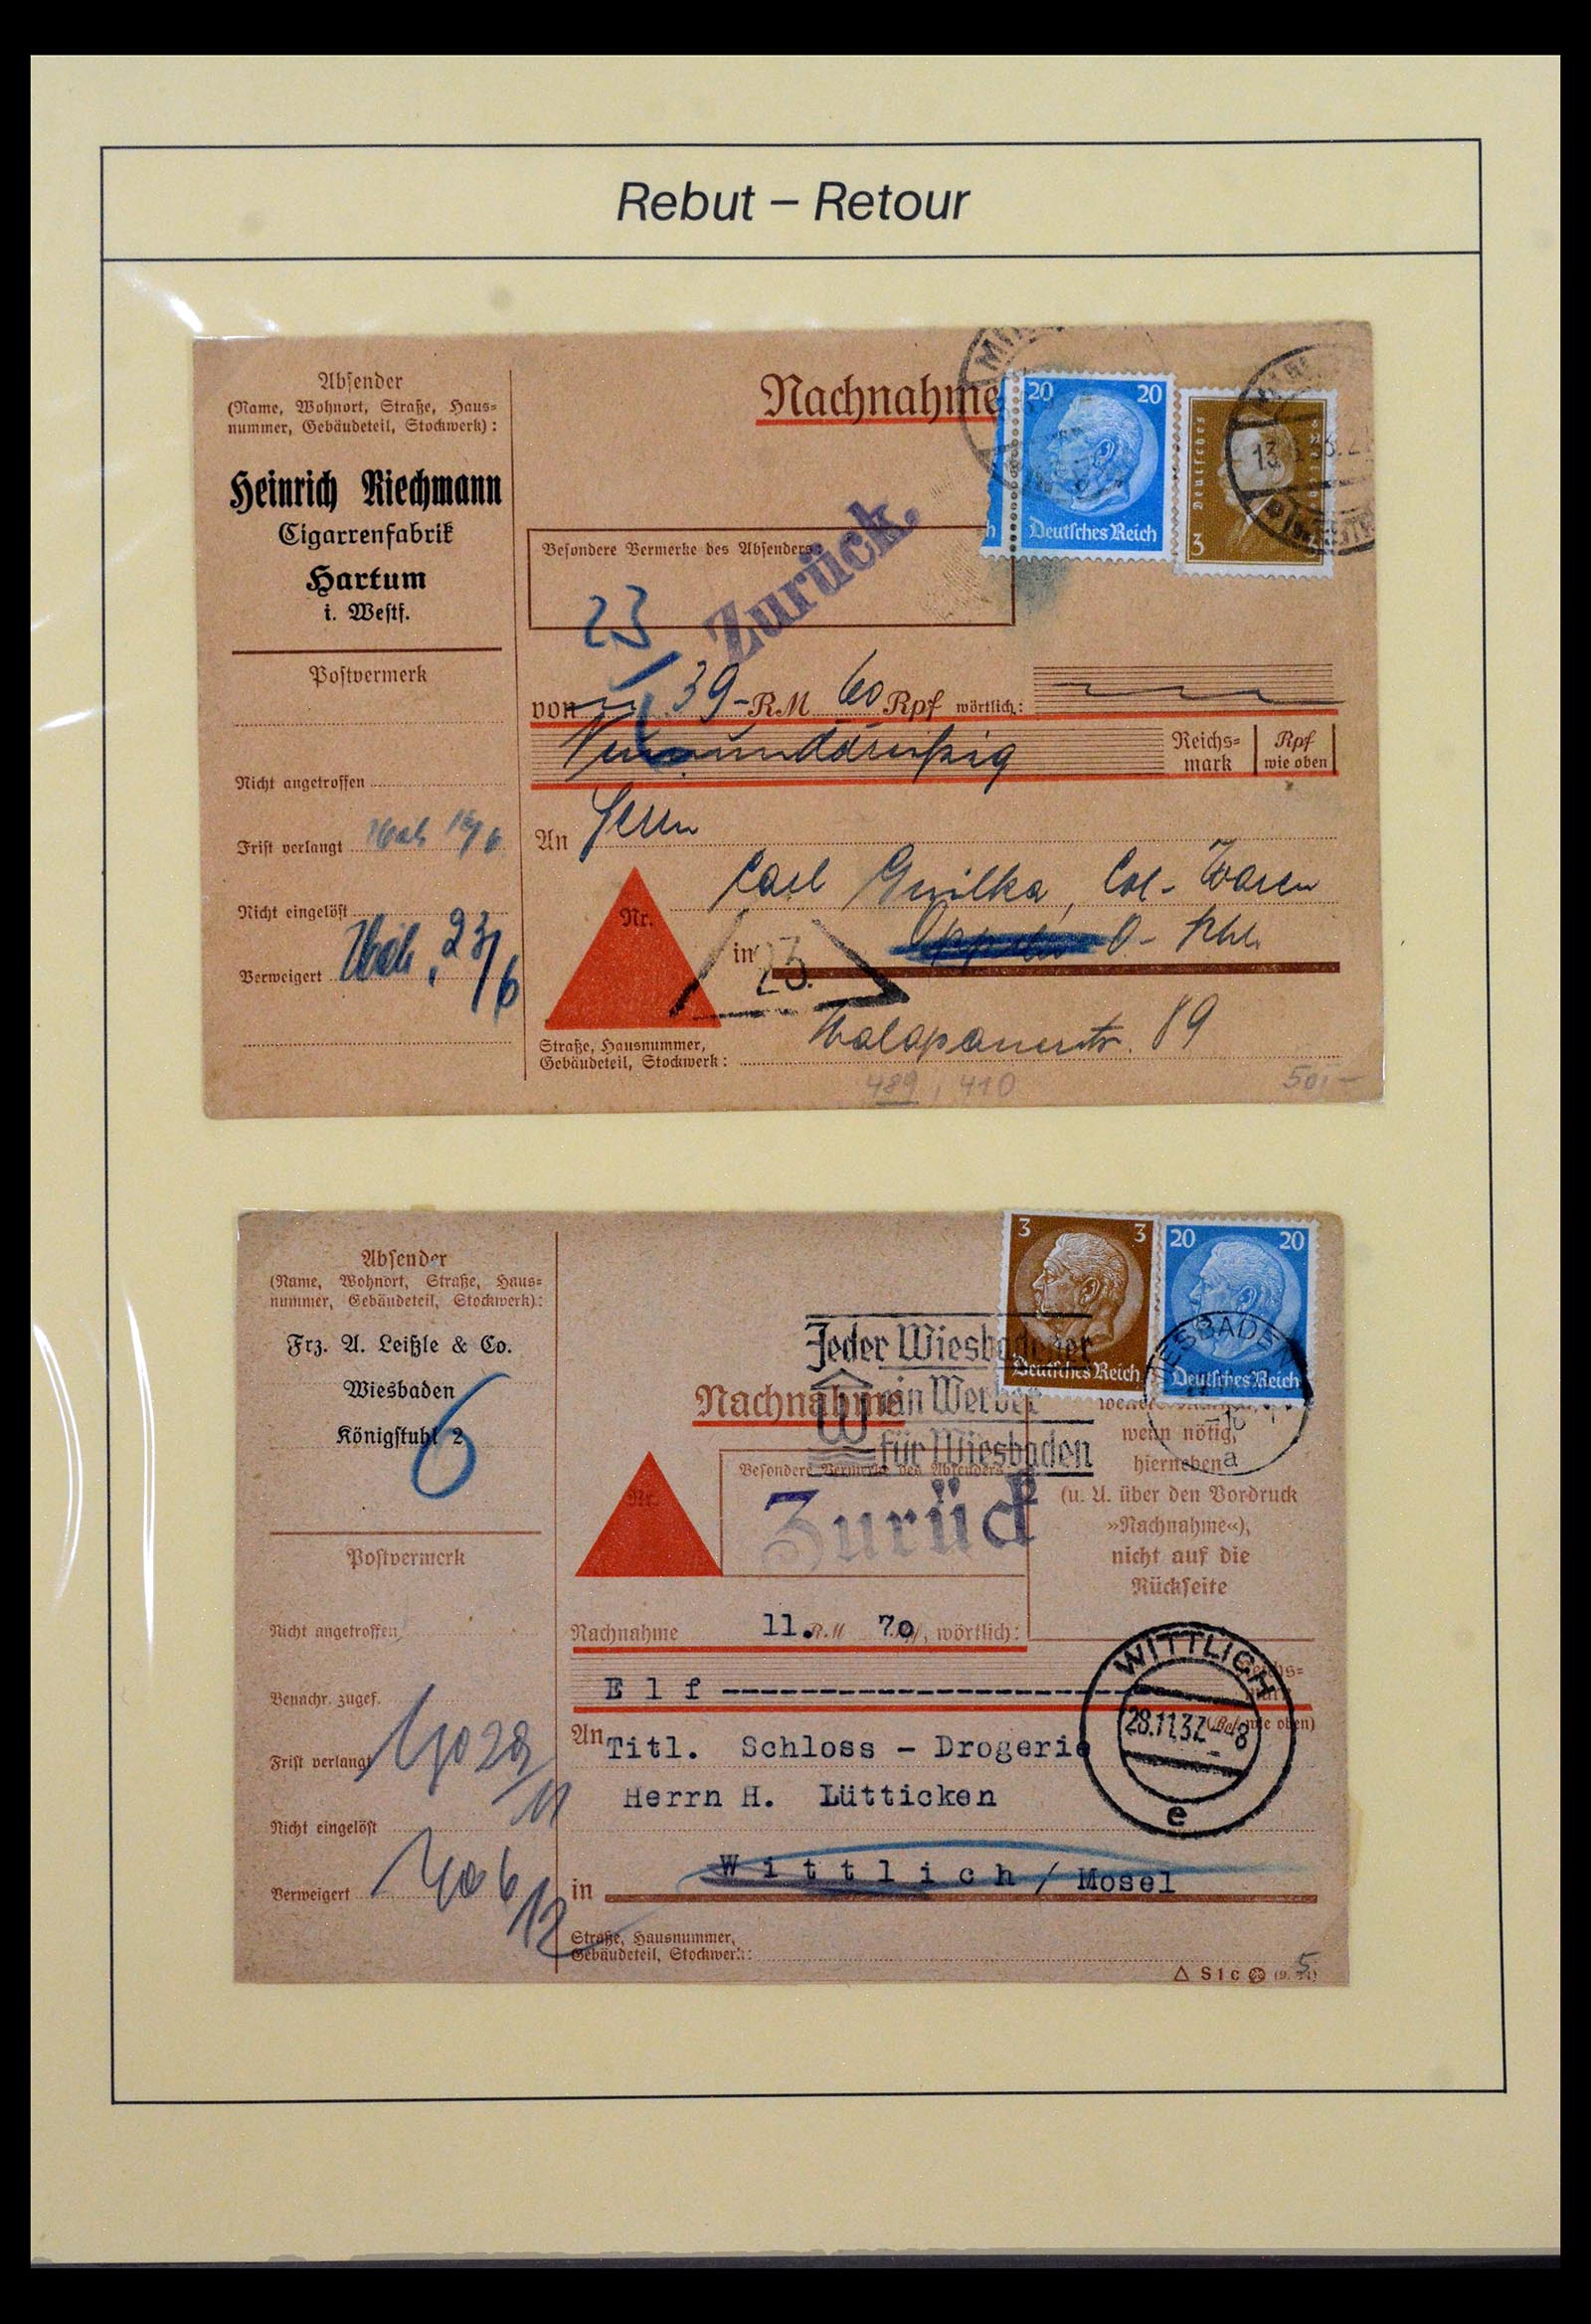 Rebut – Retour
Absender
(Name, Wohnort, Straße, Haus=
nummer, Gebäudeteil, Stockwerk) :
Heinrich Riechmann
Cigarrenfabrik
Hartum
i. Westf.
Postvermerk
Nicht angetroffen
Frist verlangt
Nicht eingelöst
Verweigert 23/6
Nachnahme
20 20
Deutsches Reich
3
Deutsches
13.
Besondere Vermerke des Absenders:
Zurück.
23
von 39 RM 60 Rpf wörtlich:
Neunund dreißig
Reichs= mark
Rpf wie oben
An Herrn
Carl Gwilka, Col-Waren
Nr.
in O-Schl.
23.
Straße, Hausnummer,
Gebäudeteil, Stockwerk :
Malapanerstr. 89
489, 410
50,-
Absender
(Name, Wohnort, Straße, Haus=
nummer, Gebäudeteil, Stockwerk):
Frz. A. Leißle & Co.
Wiesbaden
Königstuhl 2
6
Postvermerk
Nicht angetroffen
Benachr. zugef.
Frist verlangt 29/11
Nicht eingelöst
Verweigert 6/12
3 3
Deutsches Reich
20 20
Deutsches Reich
WIESBADEN
a
Jeder Wiesbadener
ein Werber
für Wiesbaden
Nachnahme
Nr.
Besondere Vermerke des Absenders
Zurück
wenn nötig,
hierneben
(u. U. über den Vordruck
»Nachnahme«),
nicht auf die
Rückseite
Nachnahme 11. RM 70 Rpf, wörtlich:
Elf --------------------
wie oben)
WITTLICH
28.11.37.-8
e
An Titl. Schloss - Drogerie
Herrn H. Lütticken
in Wittlich / Mosel
Straße, Hausnummer,
Gebäudeteil, Stockwerk:
S 1 c
5